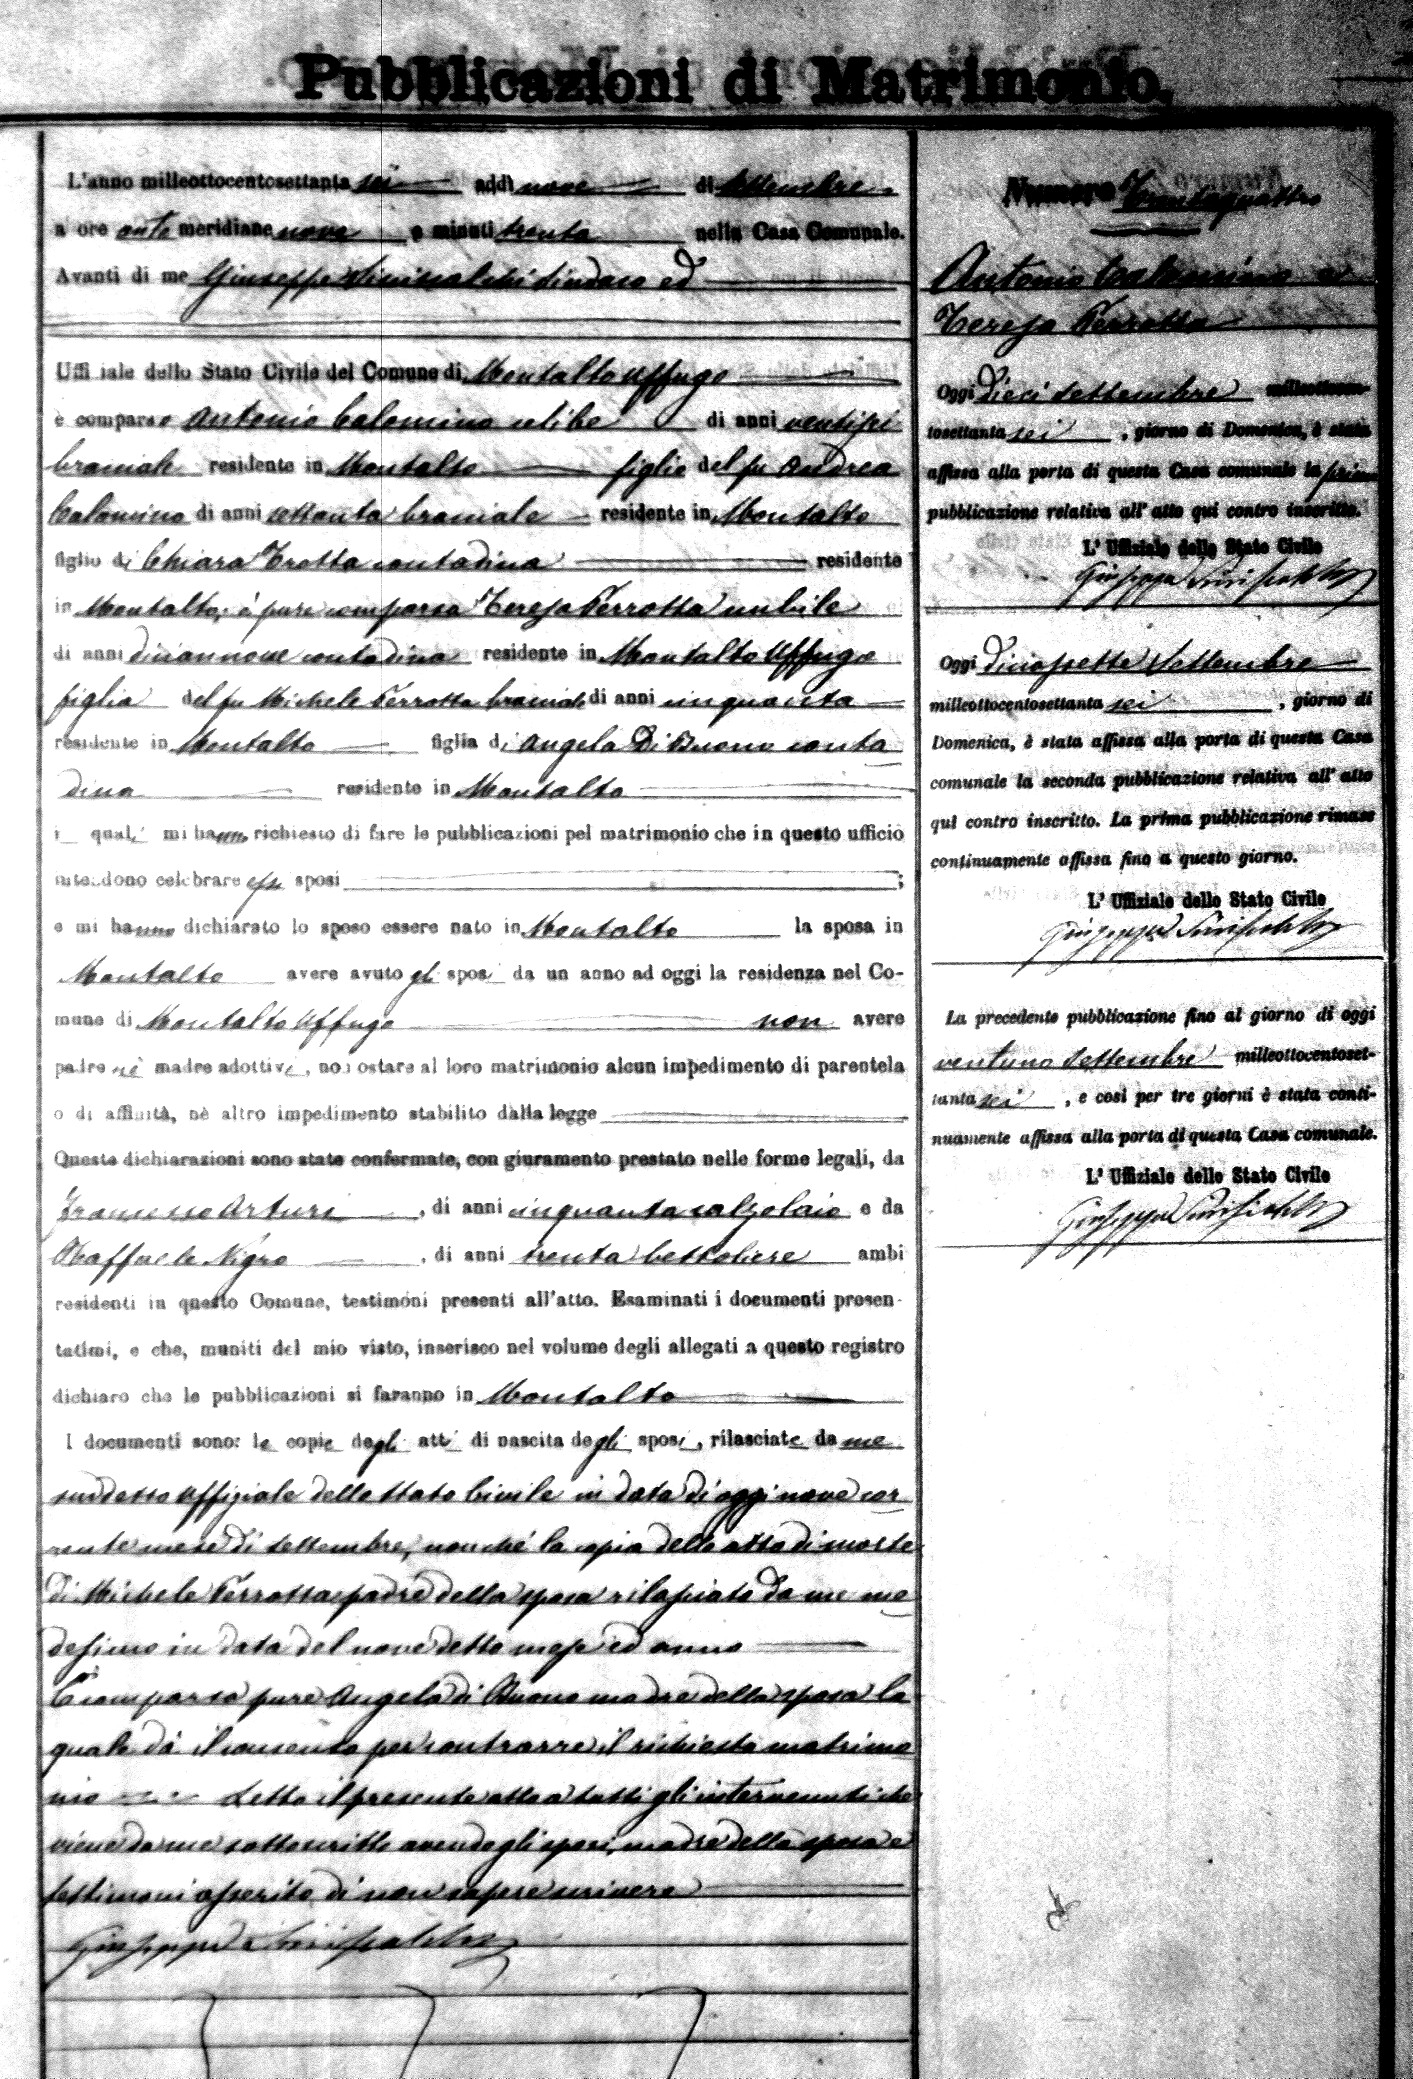 Pubblicazioni di Matrimonio.
L'anno milleottocentosettanta sei addì nove di Settembre
a ore ante meridiane nove e minuti trenta nella Casa Comunale.
Avanti di me Giuseppe Siniscalchi Sindaco ed
Uffi iale dello Stato Civile del Comune di Montalto Uffugo
è comparso Antonio Calomino celibe di anni ventisei
braciale residente in Montalto figlio del fu Andrea
Calomino di anni settanta braciale residente in Montalto
figlio di Chiara Trotta contadina residente
in Montalto; è pure comparsa Teresa Perrotta nubile
di anni diciannove contadina residente in Montalto Uffugo
figlia del fu Michele Perrotta braciale di anni cinquanta
residente in Montalto figlia di Angela Di Buono conta
dina residente in Montalto
i quali mi hanno richiesto di fare le pubblicazioni pel matrimonio che in questo ufficio
intendono celebrare essi sposi ;
e mi hanno dichiarato lo sposo essere nato in Montalto la sposa in
Montalto avere avuto gli sposi da un anno ad oggi la residenza nel Co-
mune di Montalto Uffugo non avere
padre nè madre adottivi, non ostare al loro matrimonio alcun impedimento di parentela
o di affinità, nè altro impedimento stabilito dalla legge
Queste dichiarazioni sono state confermate, con giuramento prestato nelle forme legali, da
Francesco Arturi , di anni cinquanta calzolaio e da
Raffaele Nigro , di anni trenta bettoliere ambi
residenti in questo Comune, testimoni presenti all'atto. Esaminati i documenti presen-
tatimi, e che, muniti del mio visto, inserisco nel volume degli allegati a questo registro
dichiaro che le pubblicazioni si faranno in Montalto
I documenti sono: le copie degli atti di nascita degli sposi, rilasciate da me
suddetto Uffiziale dello Stato Civile in data di oggi nove cor
rente mese di Settembre, nonché la copia dello atto di morte
di Michele Perrotta padre della sposa rilasciato da me me
desimo in data del nove detto mese ed anno
È comparsa pure Angela di Buono madre della sposa la
quale dà il consenso per contrarre il richiesto matrimo
nio Letto il presente atto a tutti gli intervenuti che
viene da me sottoscritto avendo gli sposi, madre della sposa e
testimoni asserito di non sapere scrivere
Giuseppe Siniscalchi
Numero Trentaquattro
Antonio Calomino e
Teresa Perrotta
Oggi dieci Settembre milleottocen-
tosettanta sei , giorno di Domenica, è stata
affissa alla porta di questa Casa comunale la prima
pubblicazione relativa all'atto qui contro inscritto.
L'Uffiziale dello Stato Civile
Giuseppe Siniscalchi
Oggi diciassette Settembre
milleottocentosettanta sei , giorno di
Domenica, è stata affissa alla porta di questa Casa
comunale la seconda pubblicazione relativa all'atto
qui contro inscritto. La prima pubblicazione rimase
continuamente affissa fino a questo giorno.
L'Uffiziale dello Stato Civile
Giuseppe Siniscalchi
La precedente pubblicazione fino al giorno di oggi
ventuno Settembre milleottocentoset-
tanta sei , e così per tre giorni è stata conti-
nuamente affissa alla porta di questa Casa comunale.
L'Uffiziale dello Stato Civile
Giuseppe Siniscalchi